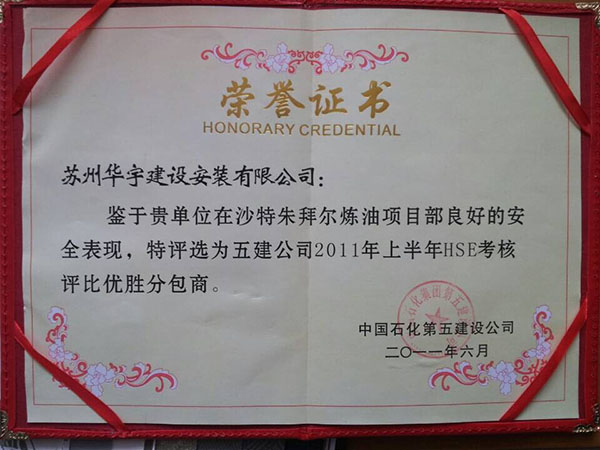 荣誉证书
HONORARY CREDENTIAL
苏州华宇建设安装有限公司：
鉴于贵单位在沙特朱拜尔炼油项目部良好的安
全表现，特评选为五建公司2011年上半年HSE考核
评比优胜分包商。
中国石化第五建设公司
二〇一一年六月